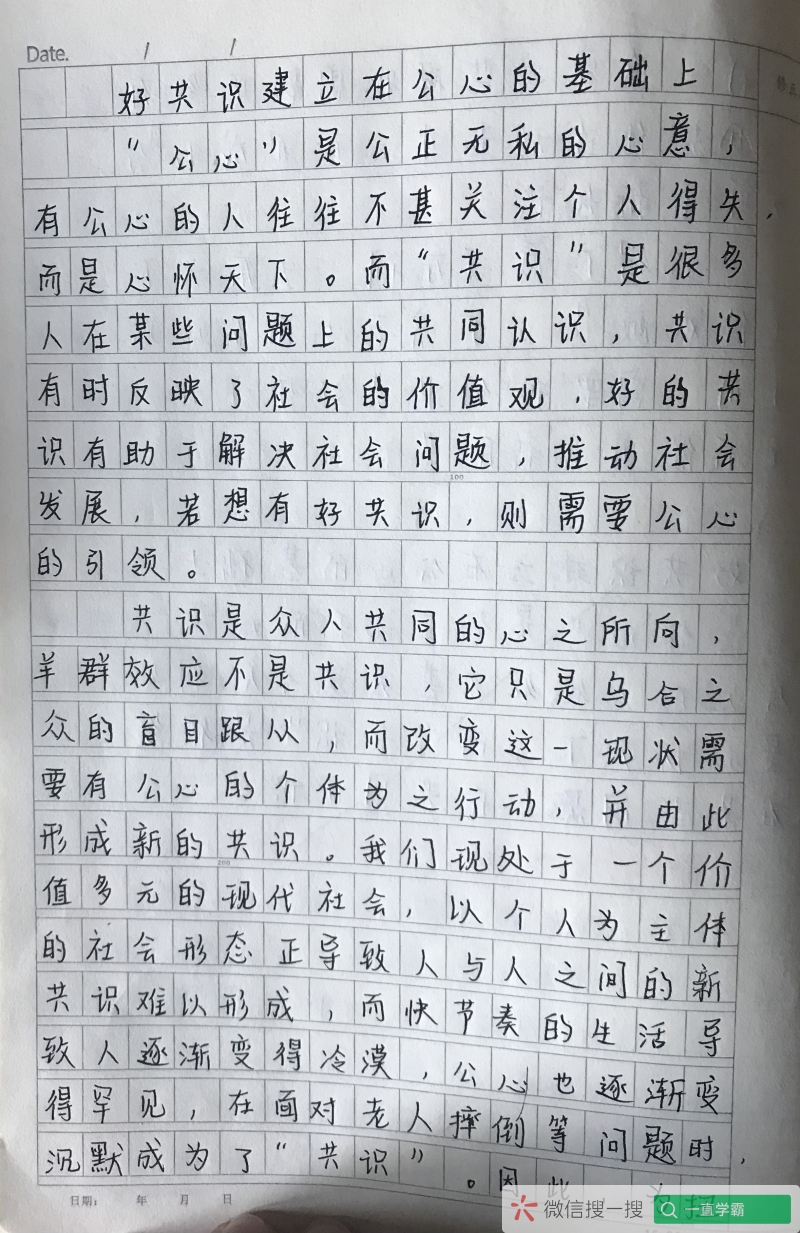 Date. / /
好共识建立在公心的基础上
“公心”是公正无私的心意，
有公心的人往往不甚关注个人得失，
而是心怀天下。而“共识”是很多
人在某些问题上的共同认识，共识
有时反映了社会的价值观，好的共
识有助于解决社会问题，推动社会
100
发展，若想有好共识，则需要公心
的引领。
共识是众人共同的心之所向，
羊群效应不是共识，它只是乌合之
众的盲目跟从，而改变这一现状需
要有公心的个体为之行动，并由此
形成新的共识。我们现处于一个价
200
值多元的现代社会，以个人为主体
的社会形态正导致人与人之间的新
共识难以形成，而快节奏的生活导
致人逐渐变得冷漠，公心也逐渐变
得罕见，在面对老人摔倒等问题时，
沉默成为了“共识”。因此，
日期： 年 月 日
微信搜一搜 一直学霸